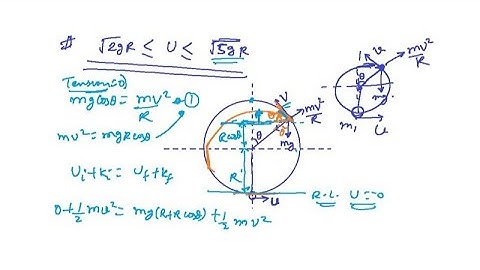 # √2gR ≤ U ≤ √5gR
Tension=0)
mg cosθ = mv²/R → ①
mv² = mgRcosθ
Ui + Ki = Uf + Kf
0 + ½ mu² = mg(R+R cosθ) + ½ mv²
V
mv²/R
θ
mg
Rcosθ
θ
R
u
R.L. U=0
v
mv²/R
θ
mg
m,
u